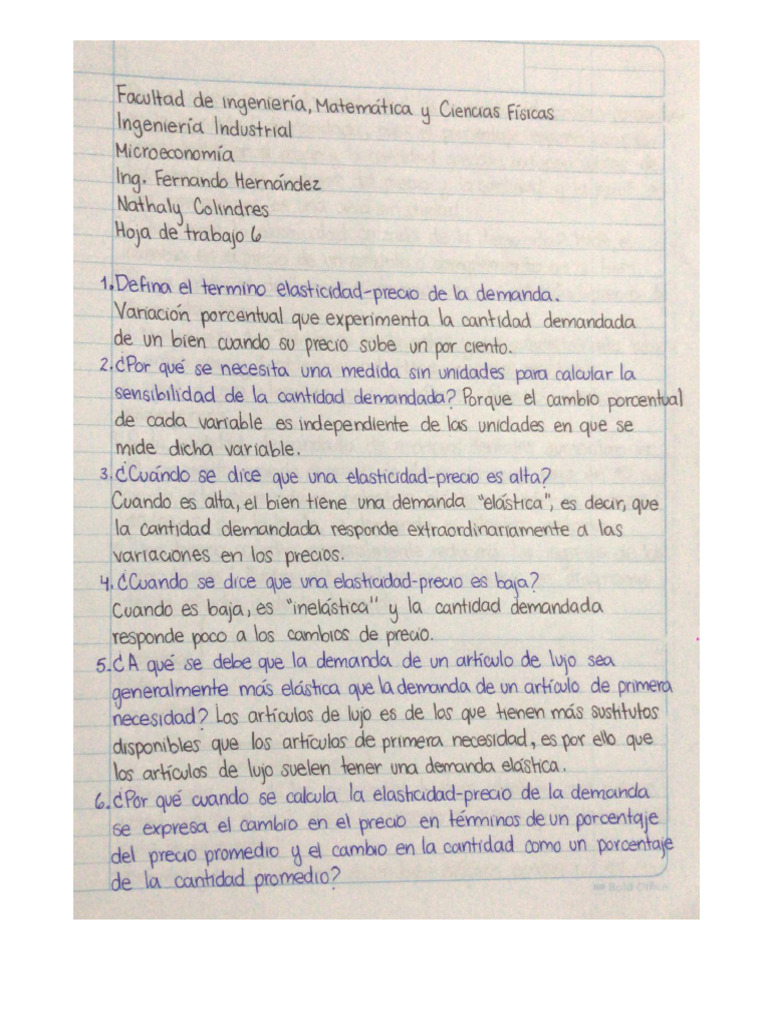 Facultad de ingeniería, Matemática y Ciencias Físicas
Ingeniería Industrial
Microeconomía
Ing. Fernando Hernández
Nathaly Colindres
Hoja de trabajo 6
1. Defina el termino elasticidad-precio de la demanda.
Variación porcentual que experimenta la cantidad demandada
de un bien cuando su precio sube un por ciento.
2. ¿Por qué se necesita una medida sin unidades para calcular la
sensibilidad de la cantidad demandada? Porque el cambio porcentual
de cada variable es independiente de las unidades en que se
mide dicha variable.
3. ¿Cuándo se dice que una elasticidad-precio es alta?
Cuando es alta, el bien tiene una demanda "elástica", es decir, que
la cantidad demandada responde extraordinariamente a las
variaciones en los precios.
4. ¿Cuando se dice que una elasticidad-precio es baja?
Cuando es baja, es "inelástica" y la cantidad demandada
responde poco a los cambios de precio.
5. ¿A qué se debe que la demanda de un artículo de lujo sea
generalmente más elástica que la demanda de un artículo de primera
necesidad? Los artículos de lujo es de los que tienen más sustitutos
disponibles que los artículos de primera necesidad, es por ello que
los artículos de lujo suelen tener una demanda elástica.
6. ¿Por qué cuando se calcula la elasticidad-precio de la demanda
se expresa el cambio en el precio en términos de un porcentaje
del precio promedio y el cambio en la cantidad como un porcentaje
de la cantidad promedio?